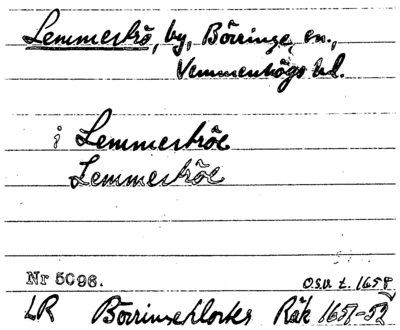 Lemmeströ, by, Börringe, sn.,
Vemmenhögs hd.
i Lemmeströe
Lemmeströe
Nr 5096.
o.s.v. t. 1658
LR Börringeklosters Räk 1651-52